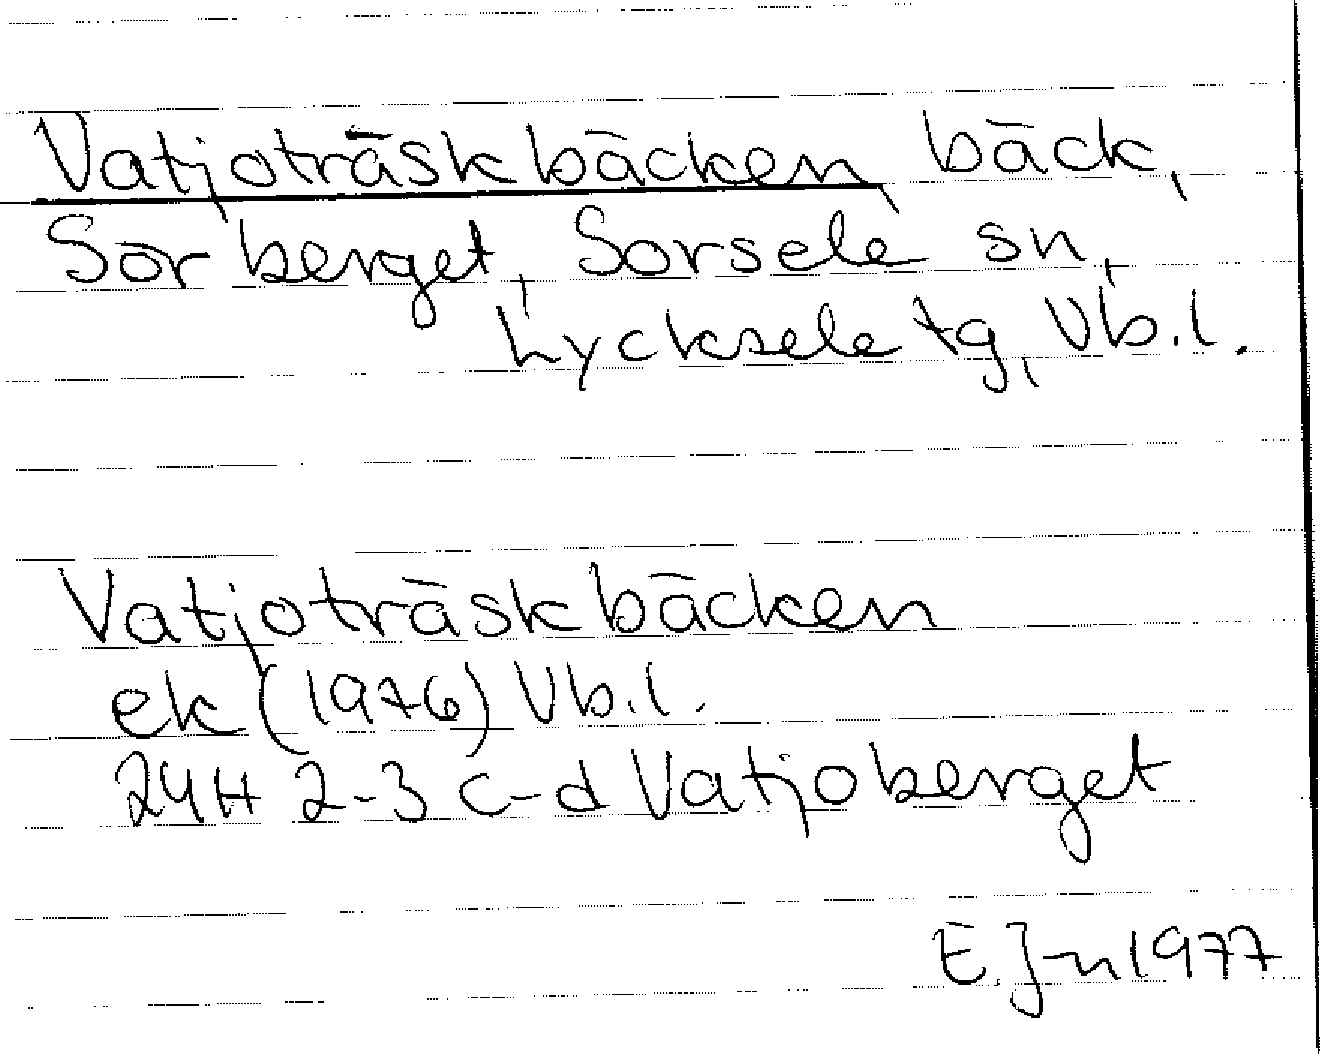 Vatjoträskbäcken, bäck,
Sörberget, Sorsele sn,
Lycksele tg, Vb.l.
Vatjoträskbäcken
ek (1976) Vb.l.
24H 2-3 c-d Vatjoberget
E.J-n 1977